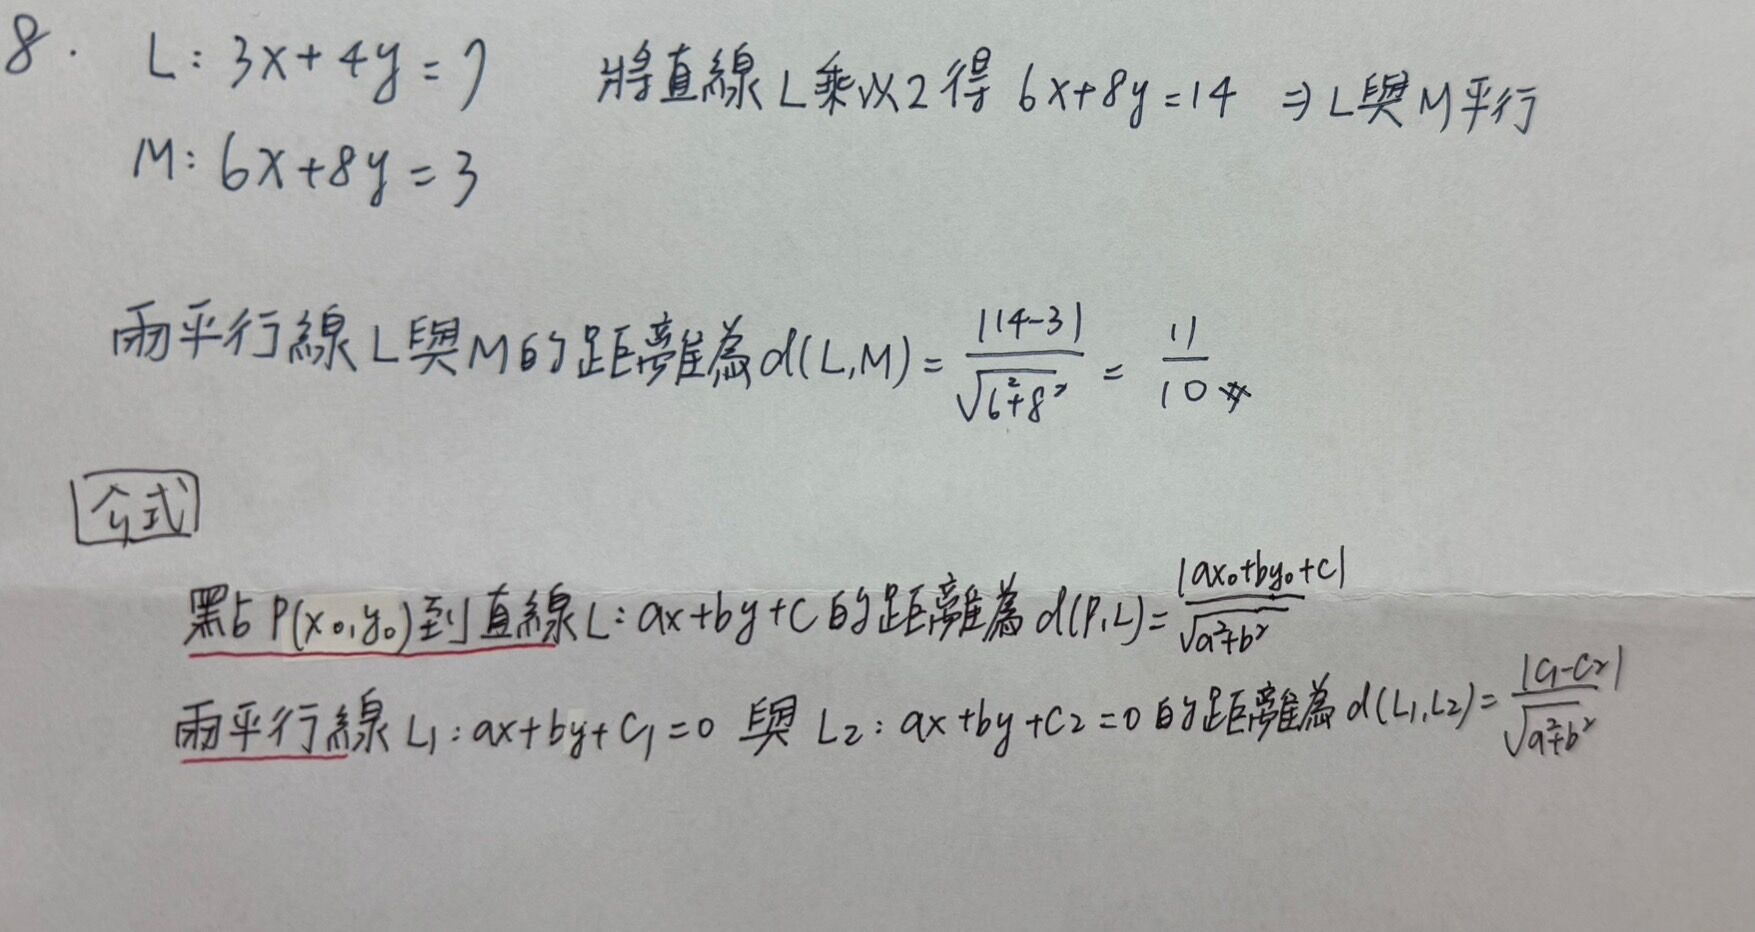 8. L: 3x+4y=7 將直線L乘以2得 6x+8y=14 ⇒ L與M平行
M: 6x+8y=3
兩平行線L與M的距離為d(L,M)= |14-3| / √(6²+8²) = 11/10 #
公式
點P(x₀,y₀)到直線L: ax+by+c的距離為 d(P,L)= |ax₀+by₀+c| / √(a²+b²)
兩平行線L₁: ax+by+c₁=0 與 L₂: ax+by+c₂=0的距離為d(L₁,L₂)= |c₁-c₂| / √(a²+b²)